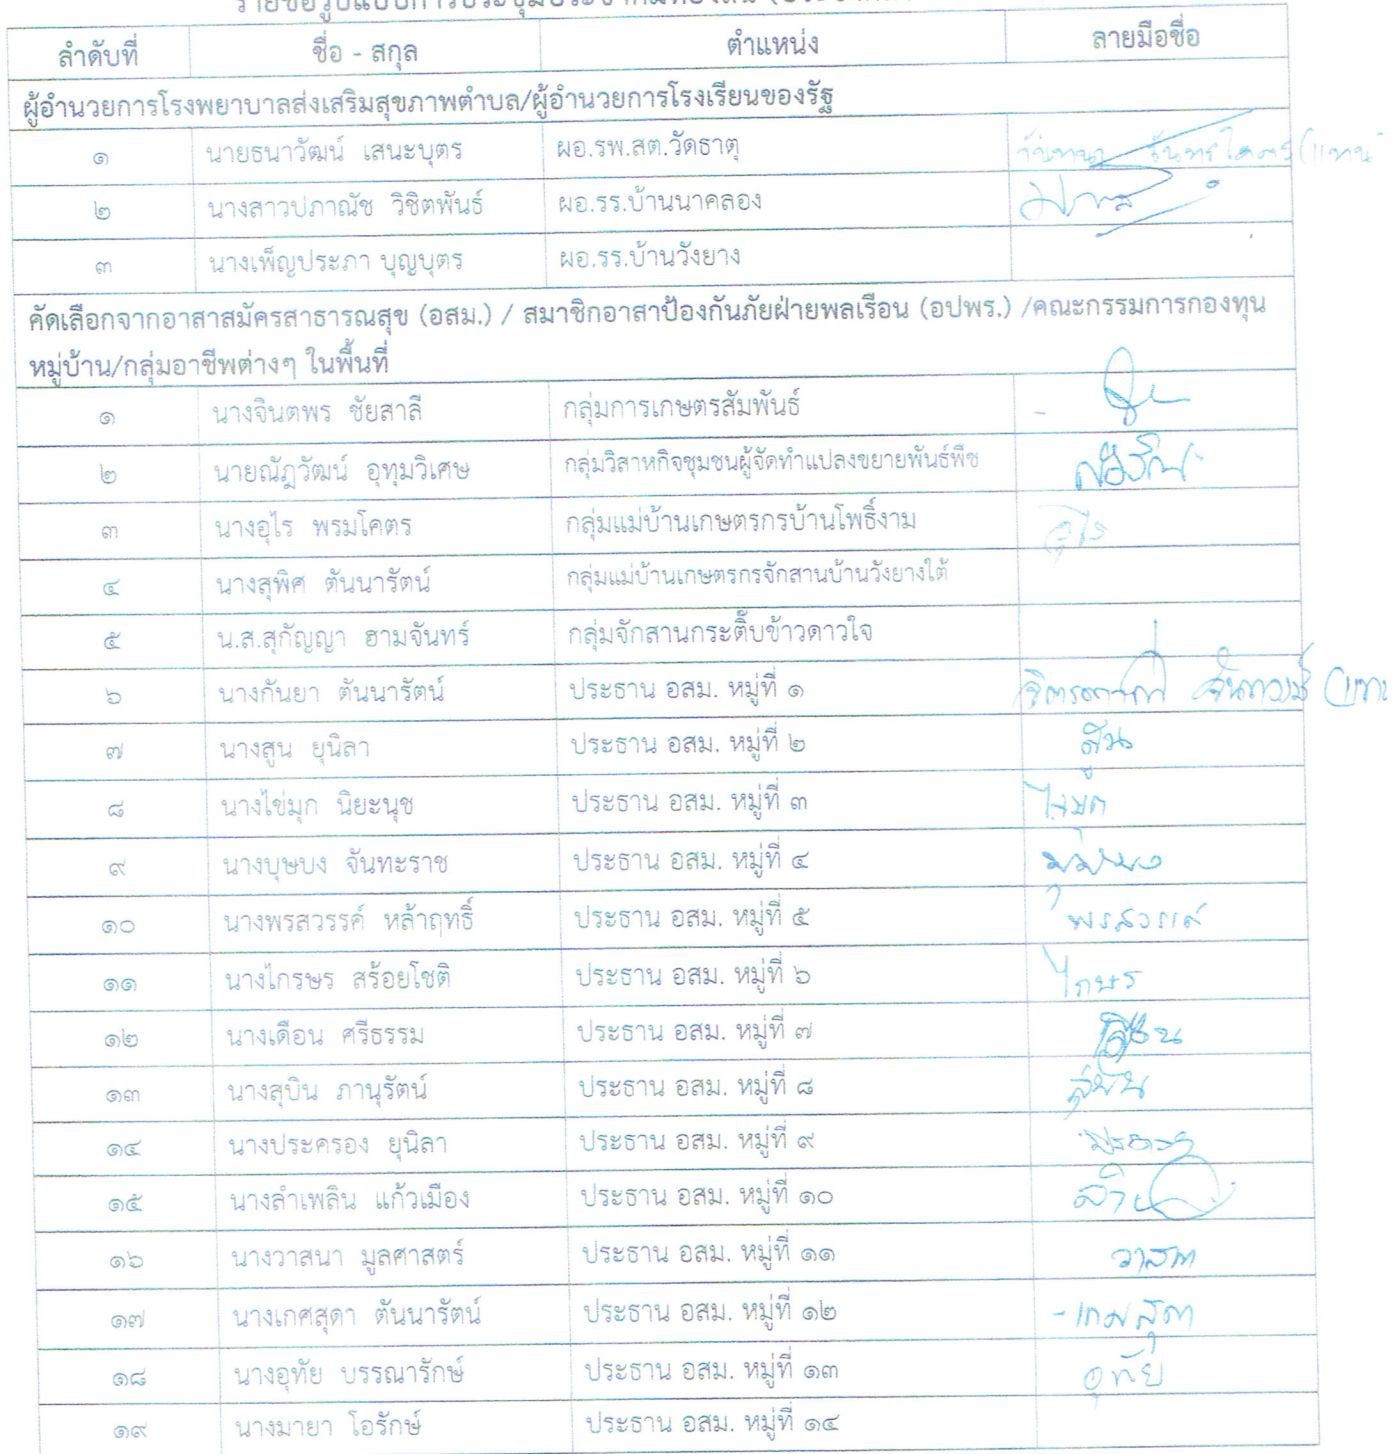 ลำดับที่ ชื่อ - สกุล ตำแหน่ง ลายมือชื่อ
ผู้อำนวยการโรงพยาบาลส่งเสริมสุขภาพตำบล/ผู้อำนวยการโรงเรียนของรัฐ
๑ นายธนาวัฒน์ เสนะบุตร ผอ.รพ.สต.วัดธาตุ
๒ นางสาวปภาณัช วิชิตพันธ์ ผอ.รร.บ้านนาคลอง
๓ นางเพ็ญประภา บุญบุตร ผอ.รร.บ้านวังยาง
คัดเลือกจากอาสาสมัครสาธารณสุข (อสม.) / สมาชิกอาสาป้องกันภัยฝ่ายพลเรือน (อปพร.) /คณะกรรมการกองทุน
หมู่บ้าน/กลุ่มอาชีพต่างๆ ในพื้นที่
๑ นางจินตพร ชัยสาลี กลุ่มการเกษตรสัมพันธ์
๒ นายณัฏวัฒน์ อุทุมวิเศษ กลุ่มวิสาหกิจชุมชนผู้จัดทำแปลงขยายพันธ์พืช
๓ นางอุไร พรมโคตร กลุ่มแม่บ้านเกษตรกรบ้านโพธิ์งาม อุไร
๔ นางสุพิศ ตันนารัตน์ กลุ่มแม่บ้านเกษตรกรจักสานบ้านวังยางใต้
๕ น.ส.สุกัญญา ฮามจันทร์ กลุ่มจักสานกระติ๊บข้าวดาวใจ
๖ นางกันยา ตันนารัตน์ ประธาน อสม. หมู่ที่ ๑
๗ นางสูน ยุนิลา ประธาน อสม. หมู่ที่ ๒
๘ นางไข่มุก นิยะนุช ประธาน อสม. หมู่ที่ ๓
๙ นางบุษบง จันทะราช ประธาน อสม. หมู่ที่ ๔
๑๐ นางพรสวรรค์ หล้าฤทธิ์ ประธาน อสม. หมู่ที่ ๕ พรสวรรค์
๑๑ นางไกรษร สร้อยโชติ ประธาน อสม. หมู่ที่ ๖ ไกษร
๑๒ นางเดือน ศรีธรรม ประธาน อสม. หมู่ที่ ๗
๑๓ นางสุบิน ภานุรัตน์ ประธาน อสม. หมู่ที่ ๘ สุบิน
๑๔ นางประครอง ยุนิลา ประธาน อสม. หมู่ที่ ๙
๑๕ นางลำเพลิน แก้วเมือง ประธาน อสม. หมู่ที่ ๑๐
๑๖ นางวาสนา มูลศาสตร์ ประธาน อสม. หมู่ที่ ๑๑ วาสนา
๑๗ นางเกศสุดา ตันนารัตน์ ประธาน อสม. หมู่ที่ ๑๒
๑๘ นางอุทัย บรรณารักษ์ ประธาน อสม. หมู่ที่ ๑๓ อุทัย
๑๙ นางมายา โอรักษ์ ประธาน อสม. หมู่ที่ ๑๔